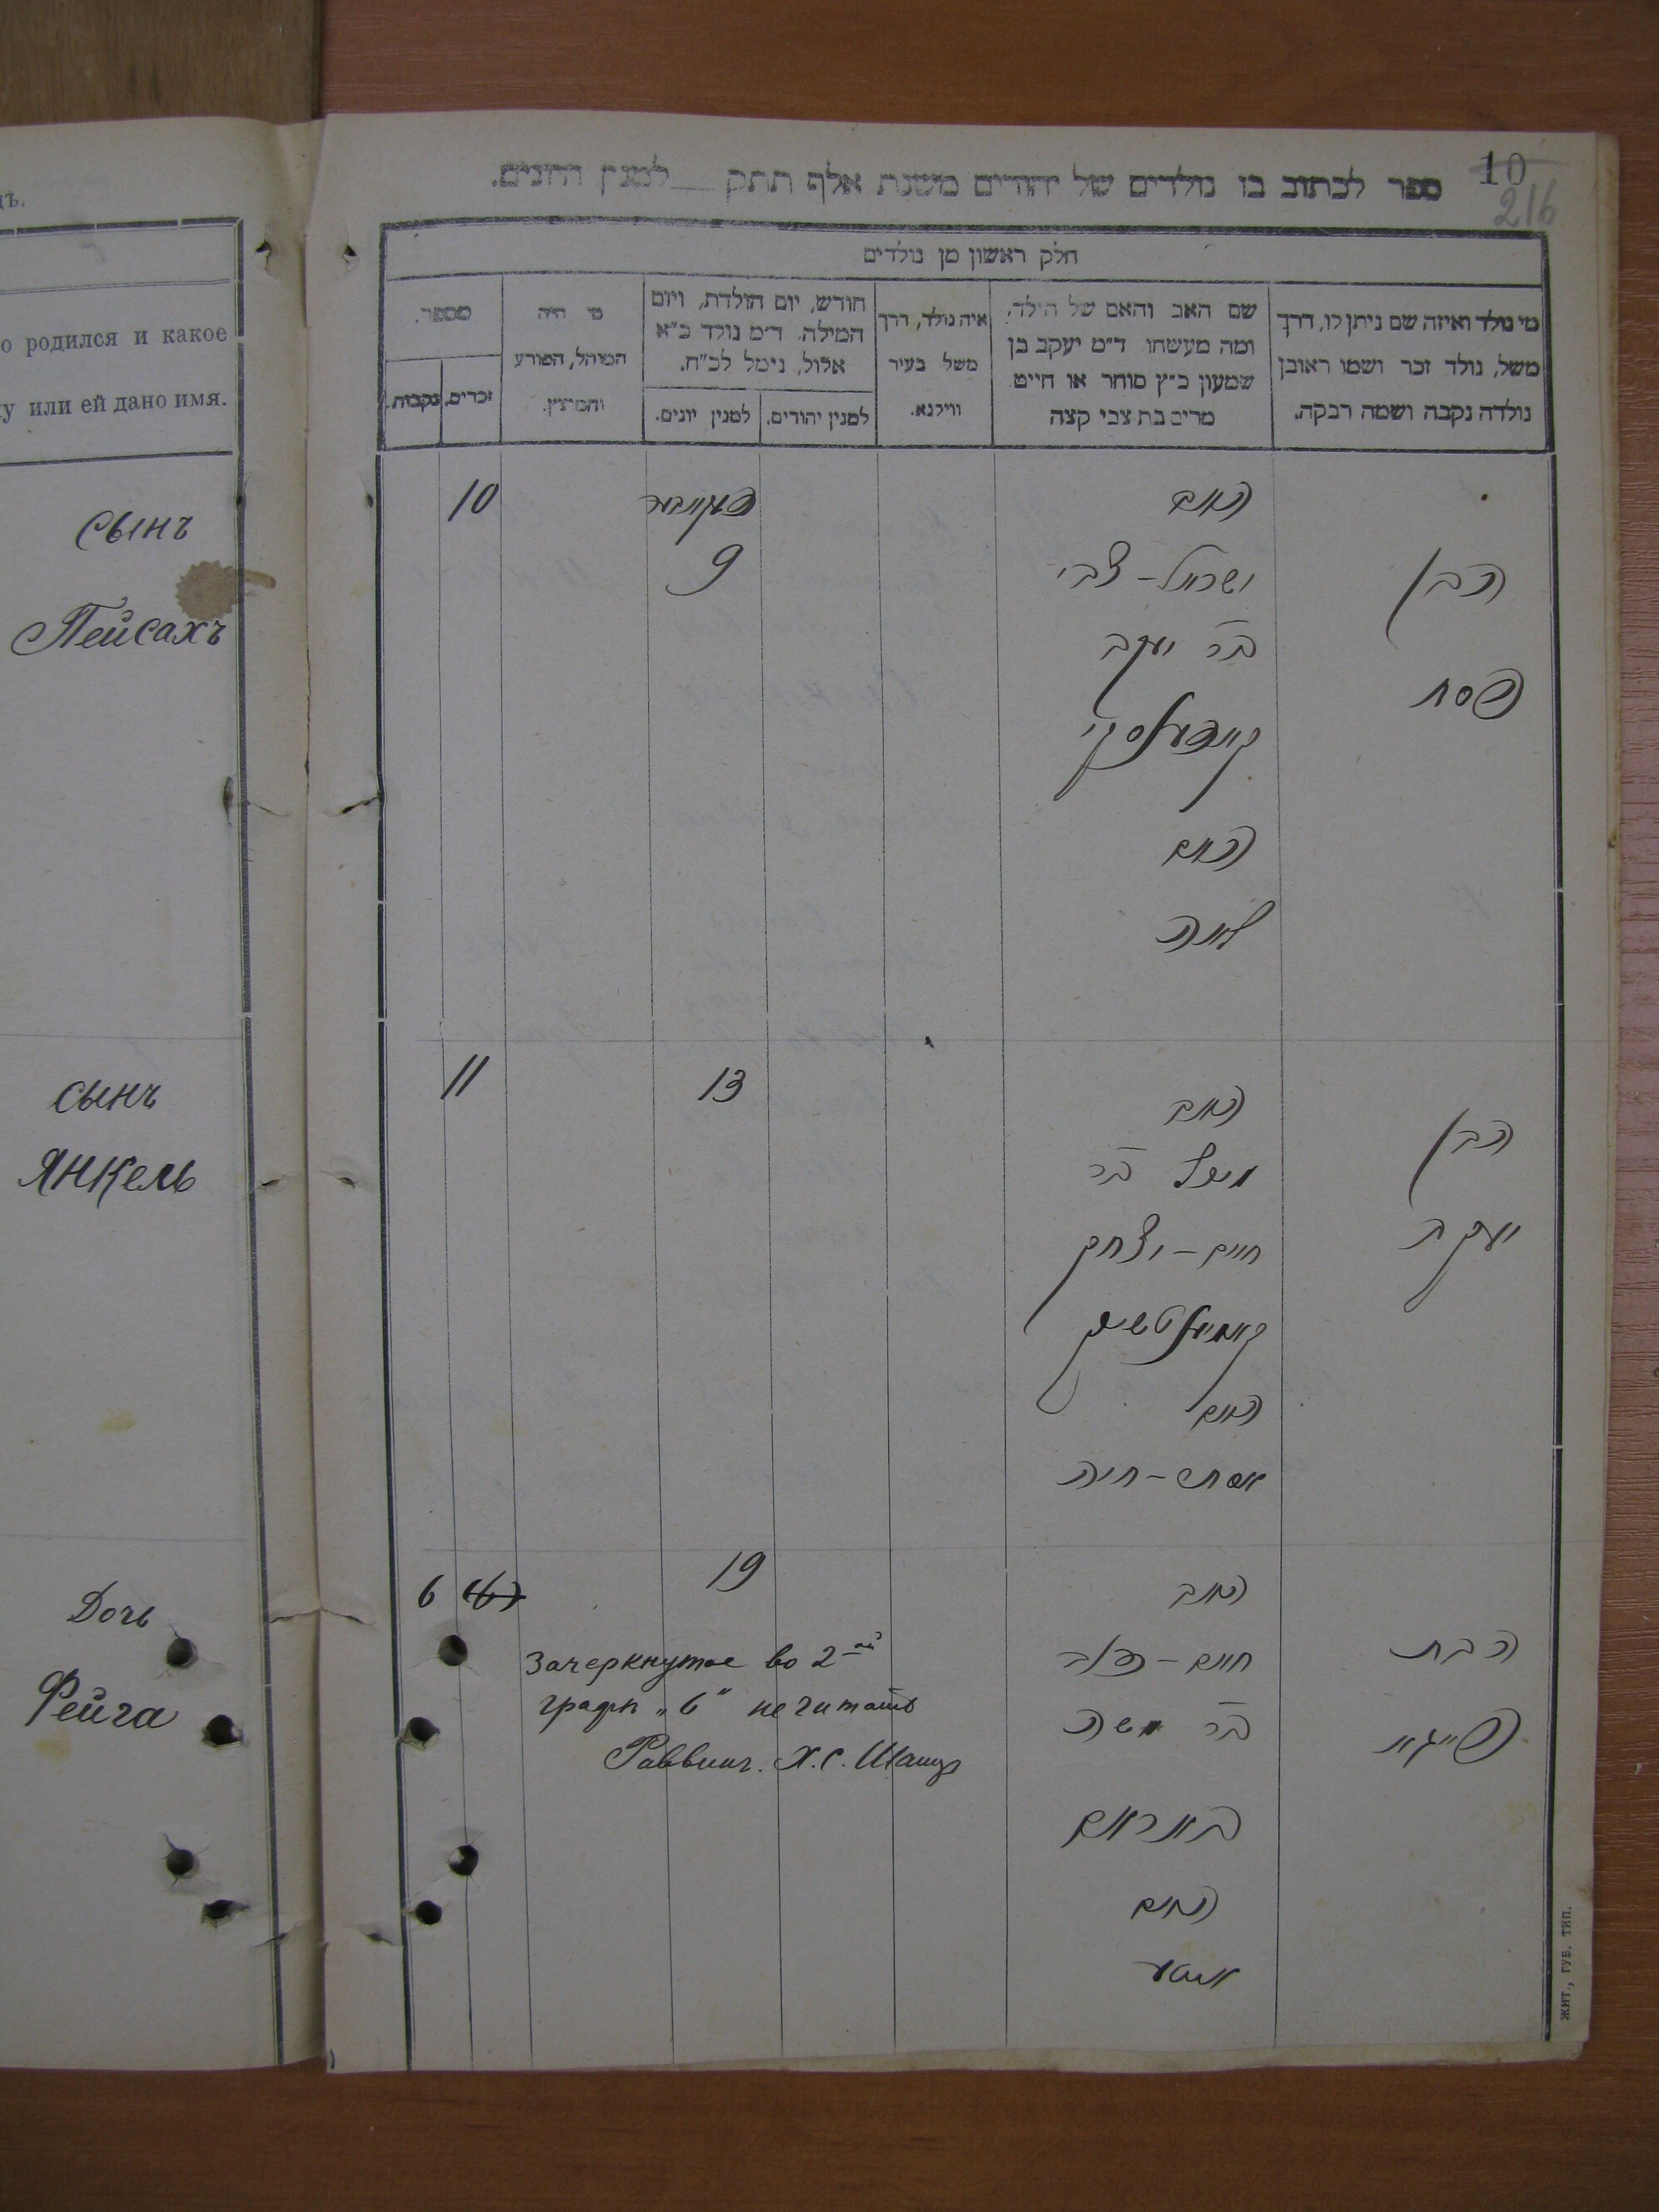 дъ.
о родился и какое
у или ей дано имя.
сынъ
Пейсахъ
сынъ
Янкель
Дочь
Фейга
10
216
ספר לכתוב בו נולדים של יהודים משנת אלף תתק למנין היונים.
חלק ראשון מן נולדים
מי נולד ואיזה שם ניתן לו, דרך
משל, נולד זכר ושמו ראובן
נולדה נקבה ושמה רבקה.
שם האב והאם של הילד,
ומה מעשהו ד״מ יעקב בן
שמעון כ״ץ סוחר או חייט
מרים בת צבי קצה
איה נולד, דרך
משל בעיר
ווילנא.
חודש, יום הולדת, ויום
המילה. ד״מ נולד כ״א
אלול, נימל לכ״ח.
למנין יהודים.
למנין יונים.
מי היה
המוהל, הפורע
והמוצץ.
מספר.
זכרים.
נקבות.
הבן
פסח
האב
ישראל-צבי
בר יעקב
האם
לאה
9
10
הבן
יעקב
האב
בר
חיים-יצחק
האם
אסתר-חיה
13
11
הבת
פייגא
האב
בר משה
האם
19
6
6
Зачеркнутое во 2-ой
графѣ „6" не читать
Раввинъ. Х. С.
ЖИТ., ГУБ. ТИП.